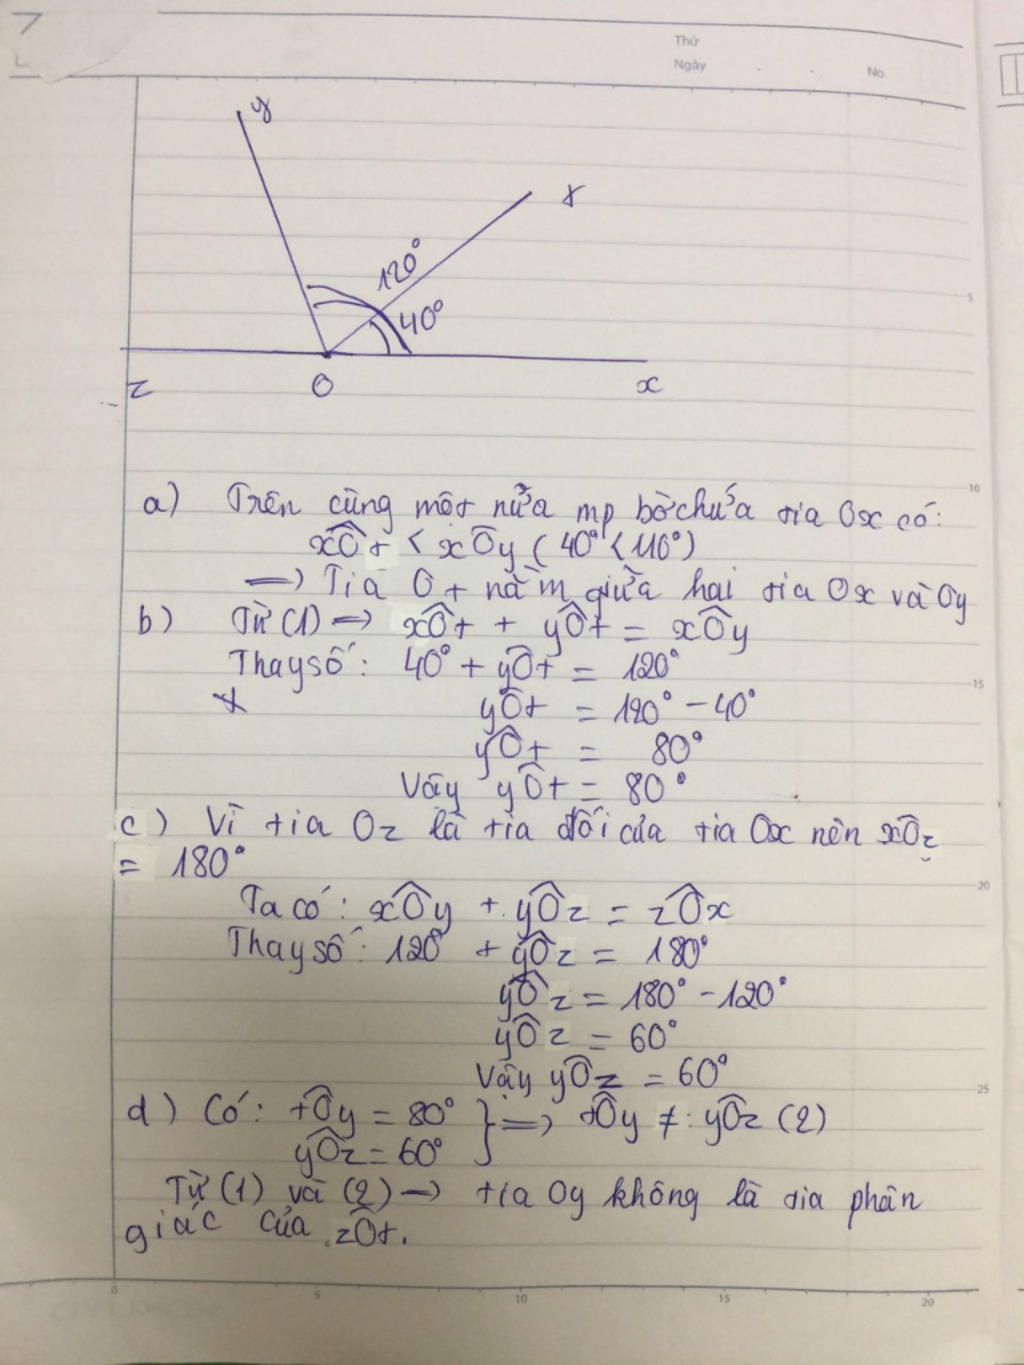 Thứ
Ngày
No.
y
t
120°
40°
z
O
x
5
a) Trên cùng một nửa mp bờ chứa tia Ox có:
10
xOt < xOy (40° < 110°)
=> Tia Ot nằm giữa hai tia Ox và Oy
b) Từ (1) => xOt + yOt = xOy
Thay số: 40° + yOt = 120°
15
yOt = 120° - 40°
yOt = 80°
Vậy yOt = 80°
c) Vì tia Oz là tia đối của tia Ox nên xOz
= 180°
20
Ta có: xOy + yOz = zOx
Thay số: 120° + yOz = 180°
yOz = 180° - 120°
yOz = 60°
Vậy yOz = 60°
25
d) Có: tOy = 80° } => tOy ≠ yOz (2)
yOz = 60°
Từ (1) và (2) => tia Oy không là tia phân
giác của zOt.
0 5 10 15 20